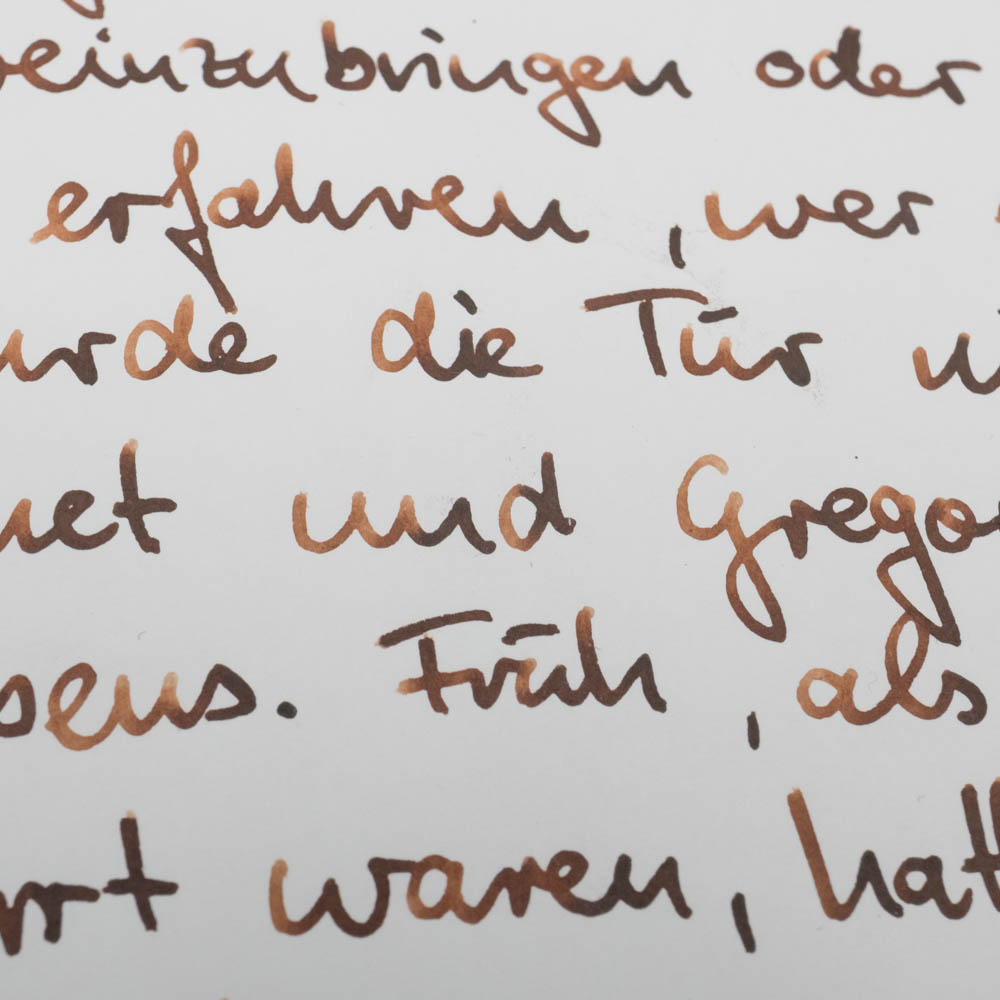 einzubringen oder
erfahren, wer
urde die Tür
net und Grego
sens. Früh, als
rrt waren, hatt